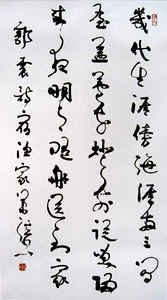 幾代生涯傍海涯兩三間
屋蓋蘆花灯前笑說歸
来夜明月隨船送到家
郭震詩宿漁家